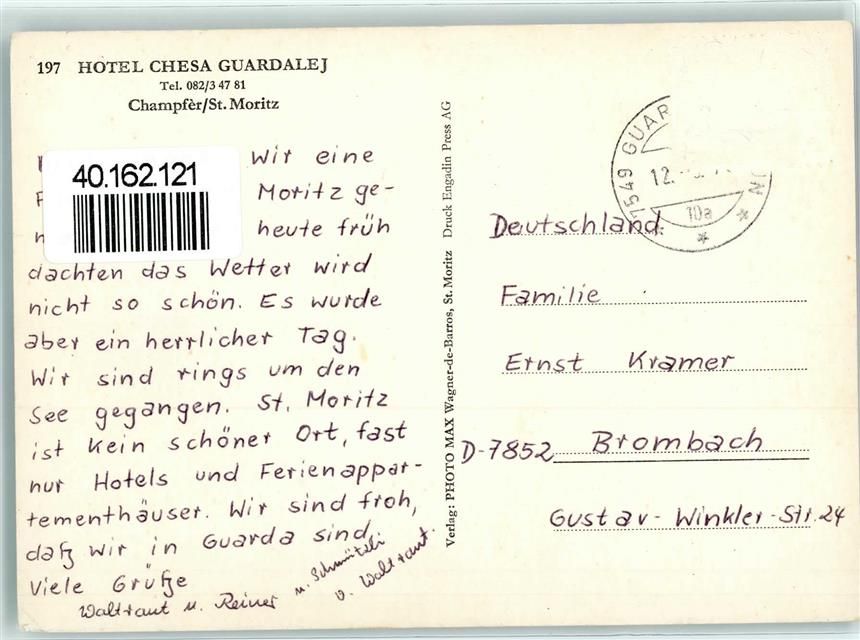 197 HOTEL CHESA GUARDALEJ
Tel. 082/3 47 81
Champfèr/St. Moritz
40.162.121
Wir eine
Moritz ge-
heute früh
dachten das Wetter wird
nicht so schön. Es wurde
aber ein herrlicher Tag.
Wir sind rings um den
See gegangen. St. Moritz
ist kein schöner Ort, fast
nur Hotels und Ferienappar-
tementhäuser. Wir sind froh,
daß wir in Guarda sind.
Viele Grüße
Waltraut u. Reiner
u. Schmützli
v. Waltraut.
Verlag: PHOTO MAX Wagner-de-Barros, St. Moritz Druck Engadin Press AG
7549 GUAR
12.
10a
Deutschland.
Familie
Ernst Kramer
D-7852 Brombach
Gustav-Winkler-Str. 24